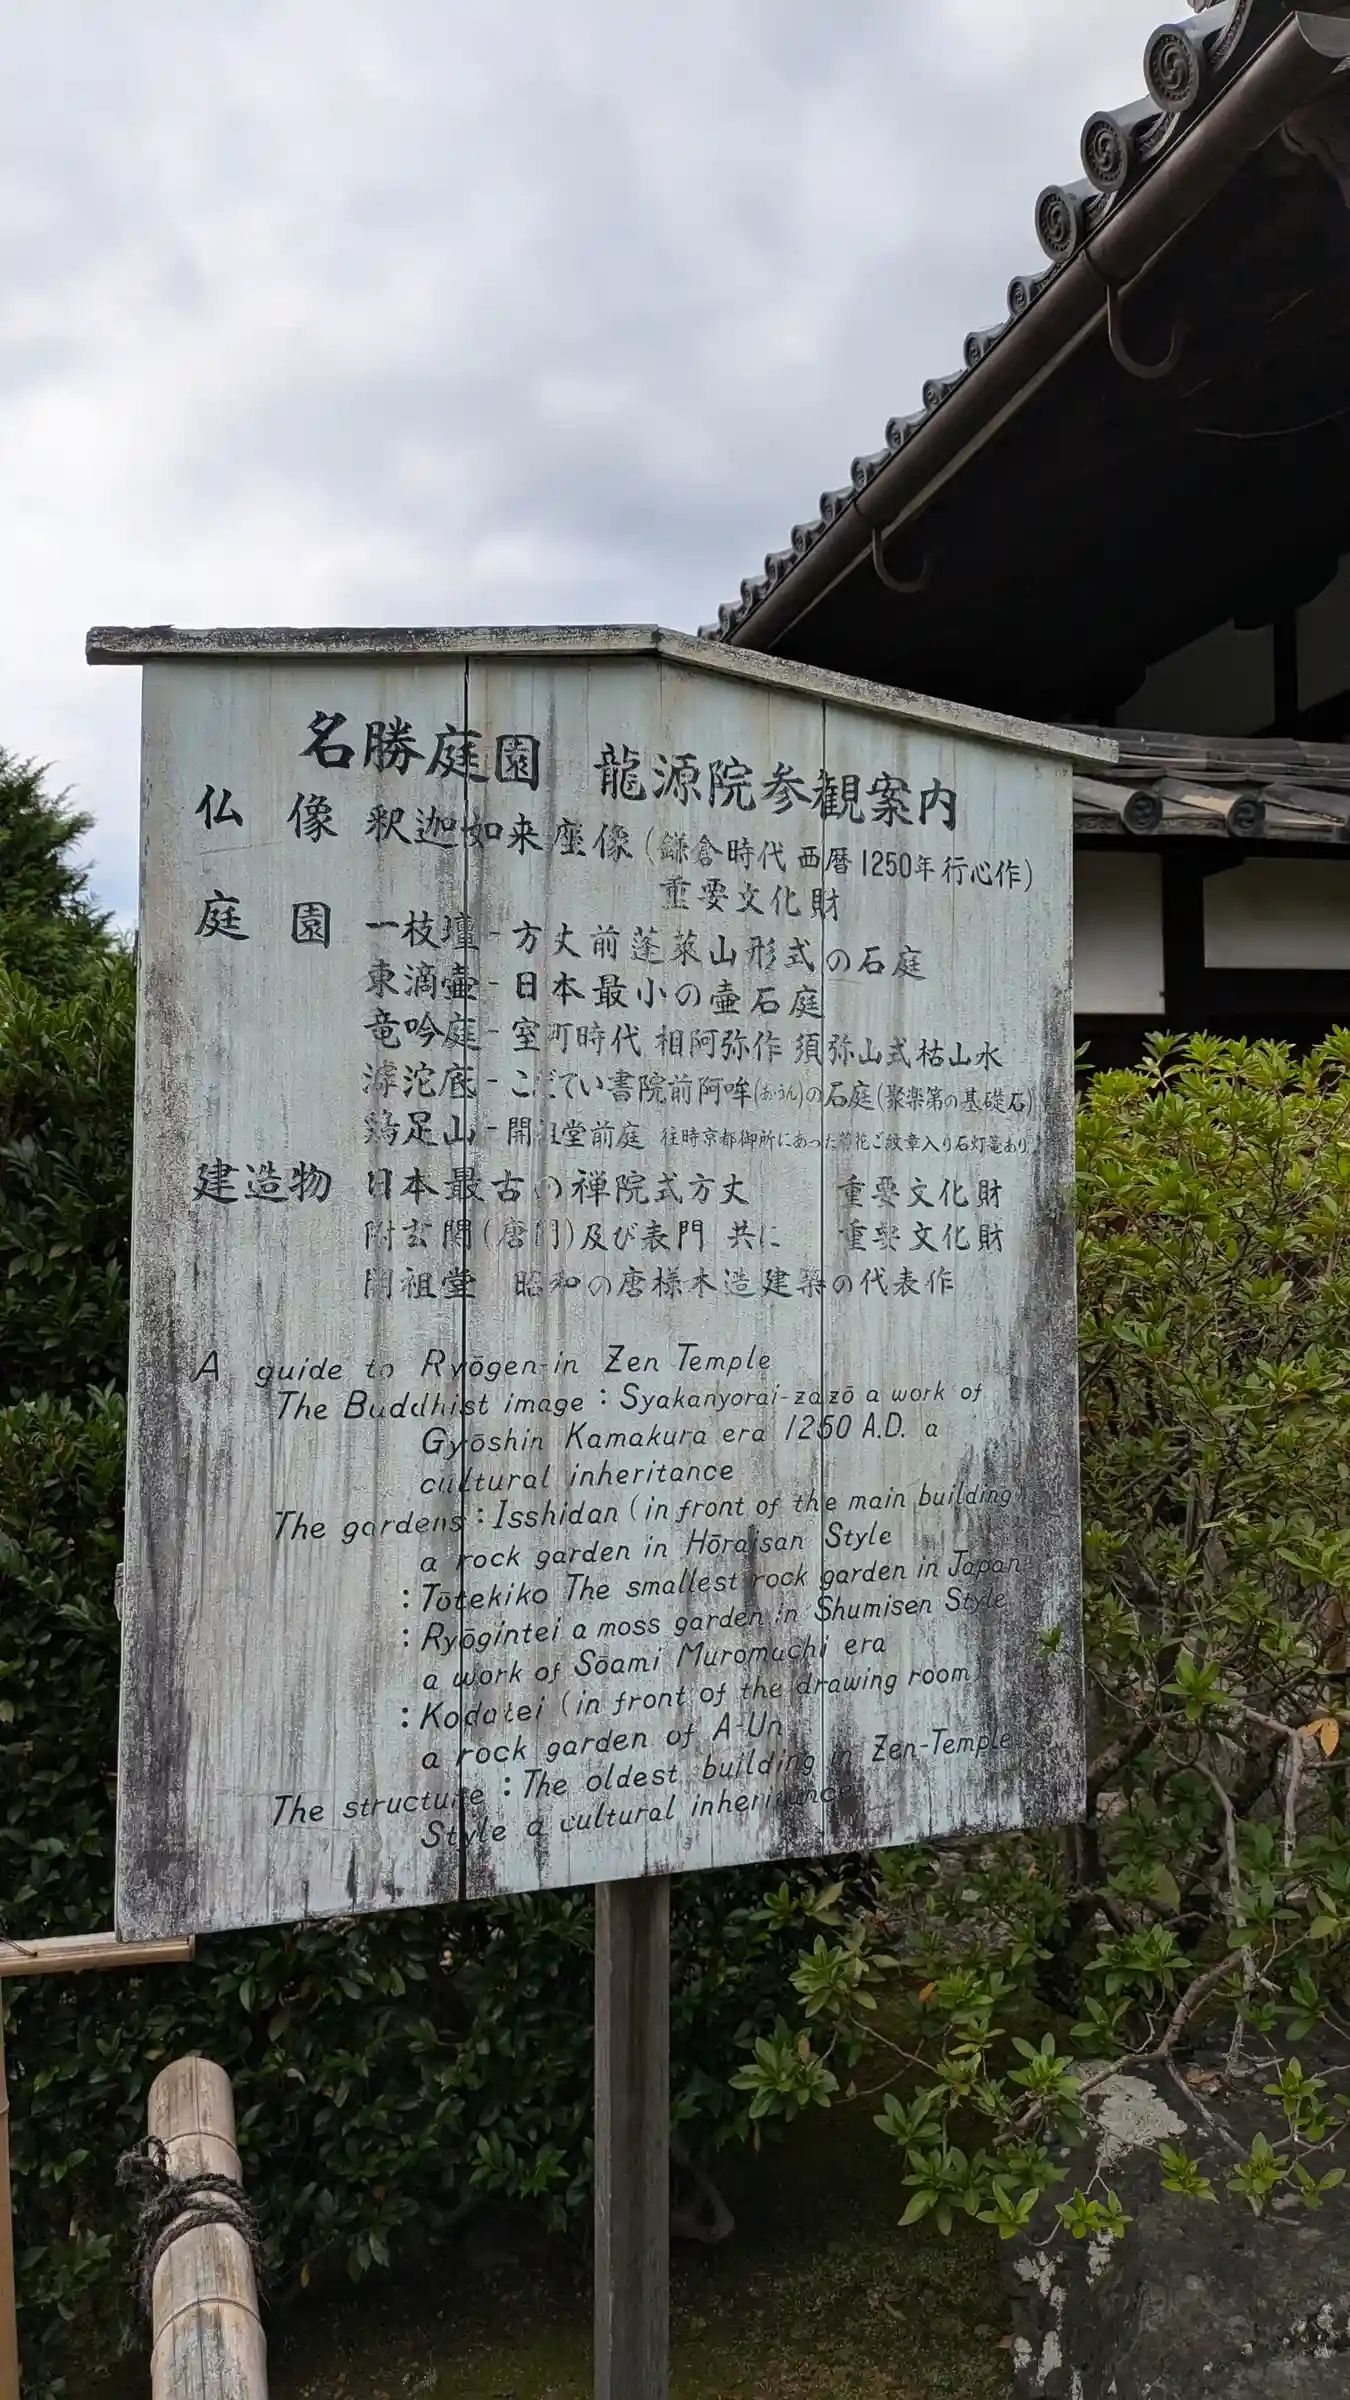 名勝庭園 龍源院参観案内
仏像 釈迦如来座像(鎌倉時代 西暦1250年行心作)
重要文化財
庭園 一枝壇-方丈前蓬萊山形式の石庭
東滴壷-日本最小の壷石庭
竜吟庭-室町時代 相阿弥作 須弥山式枯山水
滹沱底-こだてい書院前阿哞(あうん)の石庭(聚楽第の基礎石)
鶏足山-開祖堂前庭 往時京都御所にあった菊花ご紋章入り石灯篭あり
建造物 日本最古の禅院式方丈 重要文化財
附玄関(唐門)及び表門 共に 重要文化財
開祖堂 昭和の唐様木造建築の代表作
A guide to Ryōgen-in Zen Temple
The Buddhist image : Syakanyorai-zazō a work of
Gyōshin Kamakura era 1250 A.D. a
cultural inheritance
The gardens : Isshidan (in front of the main building)
a rock garden in Hōraisan Style
: Tōtekiko The smallest rock garden in Japan
: Ryōgintei a moss garden in Shumisen Style
a work of Sōami Muromachi era
: Kodatei (in front of the drawing room)
a rock garden of A-Un
The structure : The oldest building in Zen-Temple
Style a cultural inheritance